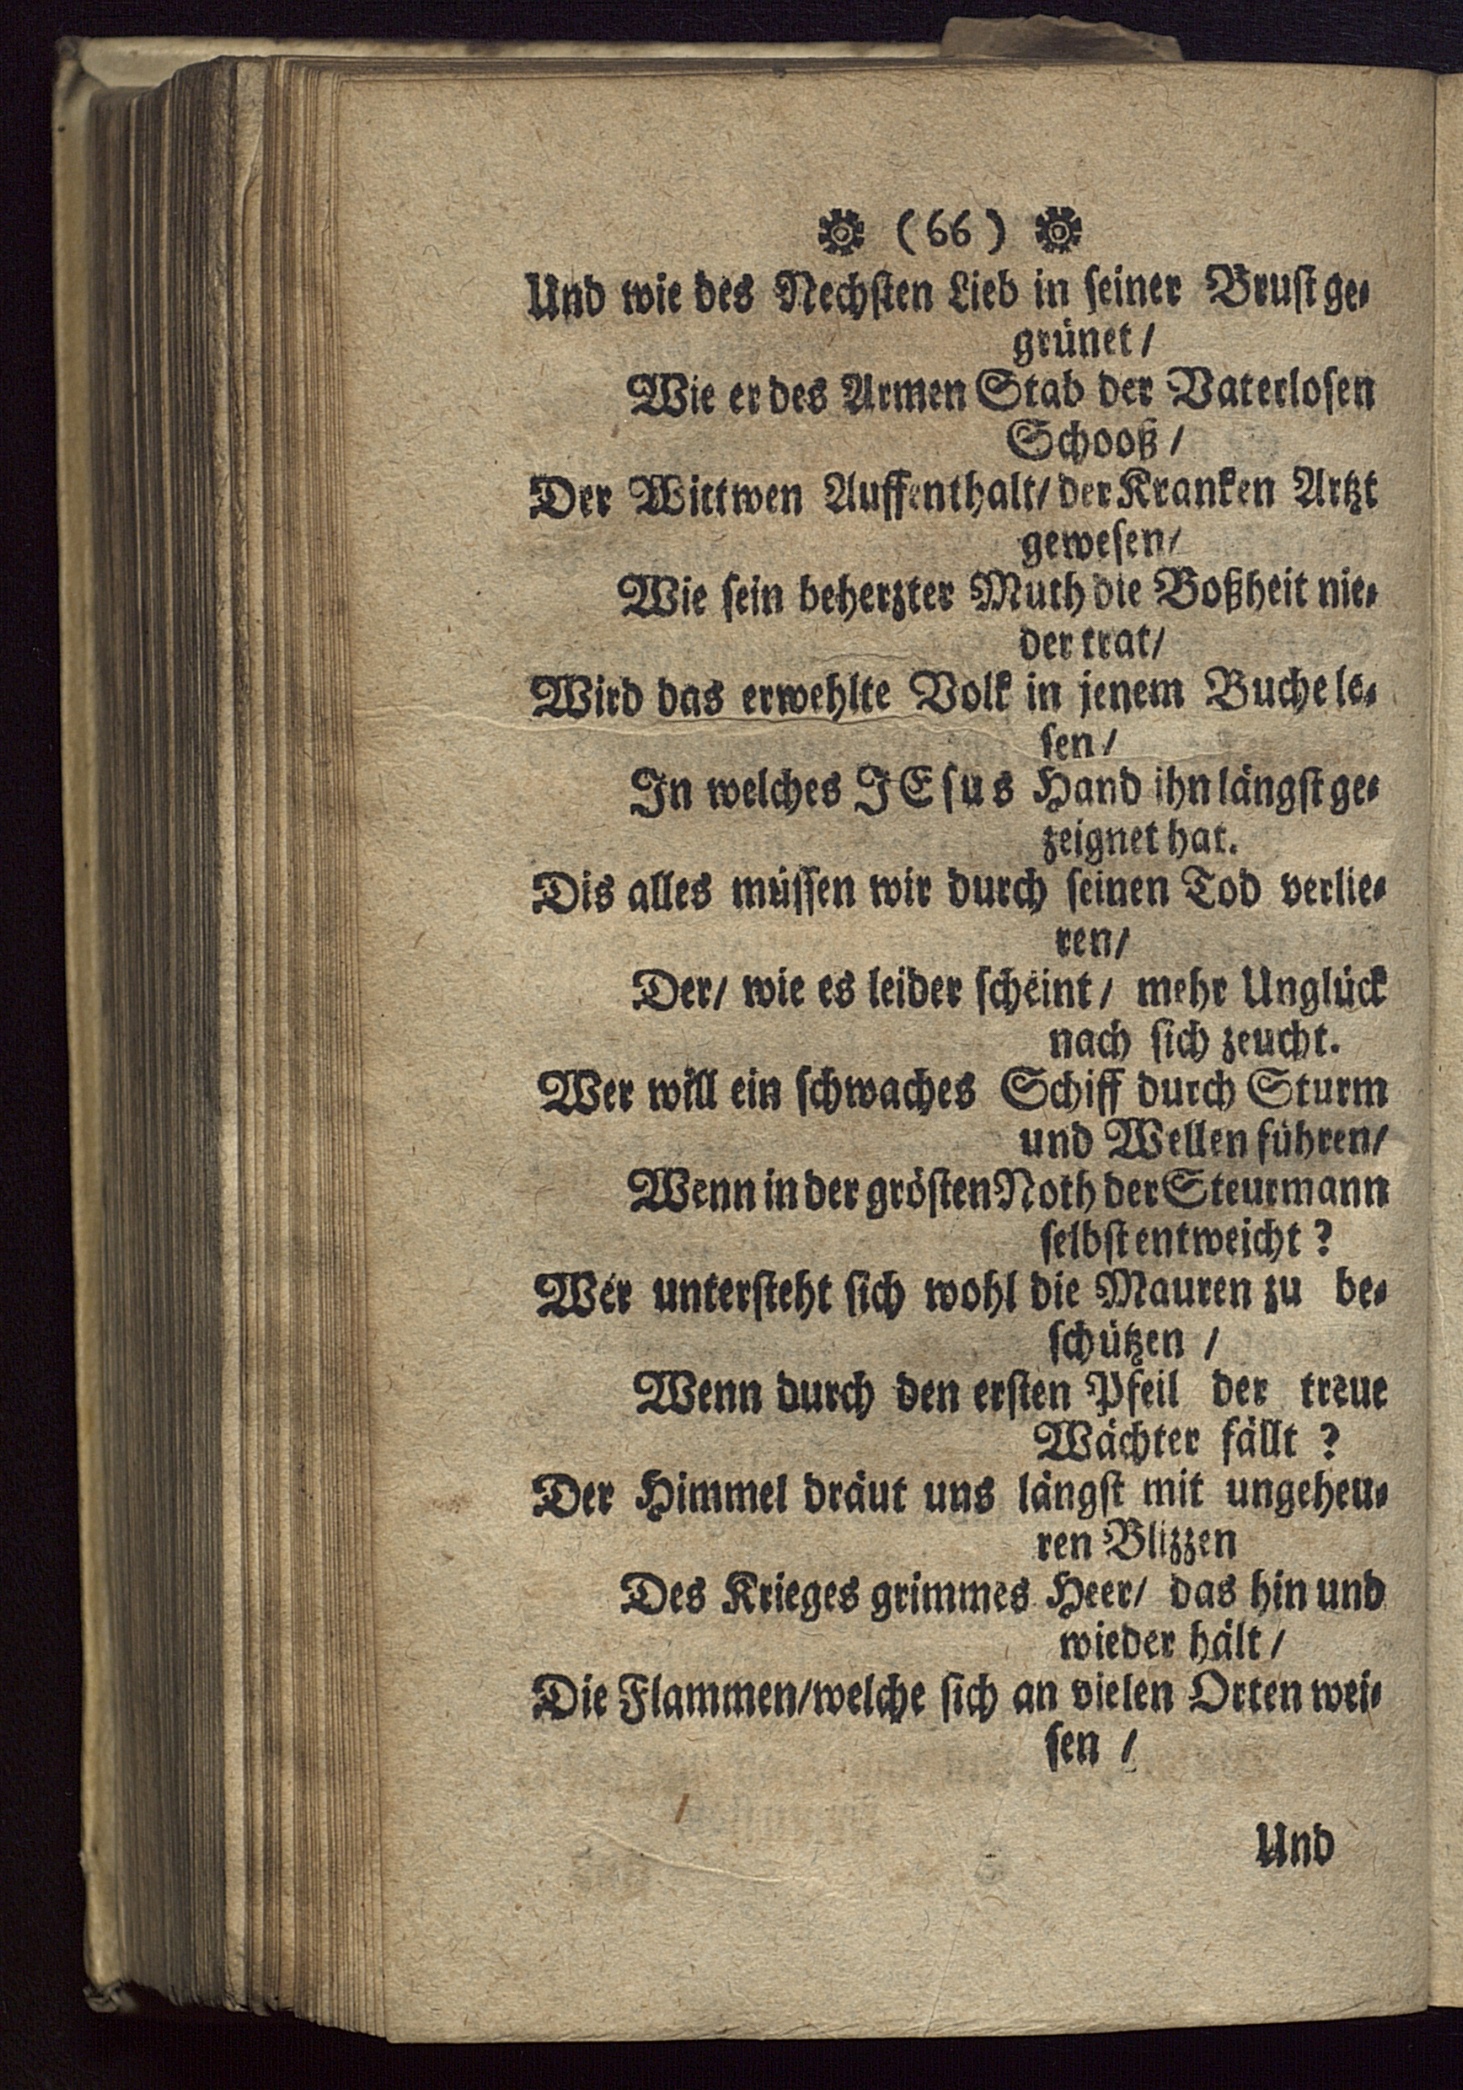 (66)
Und wie des Nechsten Lieb in seiner Brust ge-
grünet /
Wie er des Armen Stab der Vaterlosen
Schooß /
Der Wittwen Auffenthalt / der Kranken Artzt
gewesen /
Wie sein beherzter Muth die Boßheit nie-
der trat /
Wird das erwehlte Volk in jenem Buche le-
sen /
In welches JEsus Hand ihn längst ge-
zeignet hat.
Dis alles müssen wir durch seinen Tod verlie-
ren /
Der / wie es leider scheint / mehr Unglück
nach sich zeucht.
Wer will ein schwaches Schiff durch Sturm
und Wellen führen /
Wenn in der grösten Noth der Steurmann
selbst entweicht ?
Wer untersteht sich wohl die Mauren zu be-
schützen /
Wenn durch den ersten Pfeil der treue
Wächter fällt ?
Der Himmel dräut uns längst mit ungeheu-
ren Blizzen
Des Krieges grimmes Heer / das hin und
wieder hält /
Die Flammen / welche sich an vielen Orten wei-
sen /
Und